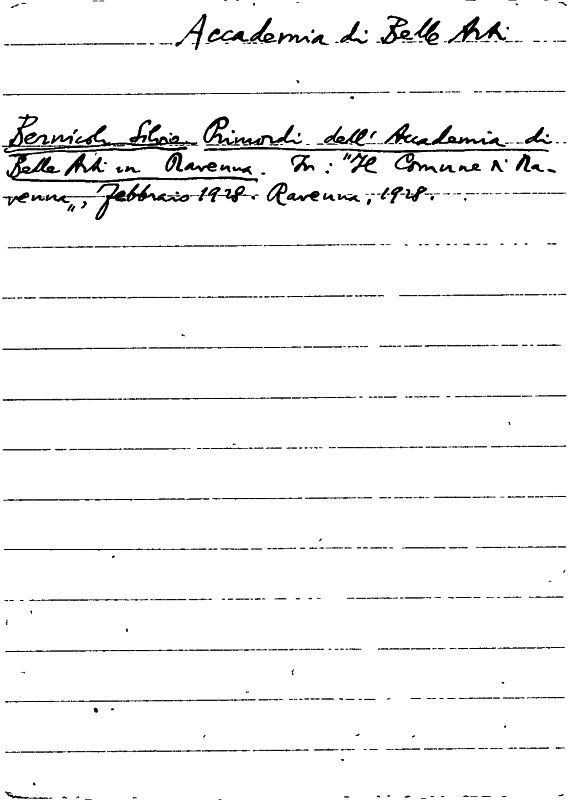 Accademia di Belle Arti
Bernicoli Silvio Primordi dell' Accademia di
Belle Arti in Ravenna. In: "Il Comune di Ra-
venna„, febbraio 1928. Ravenna, 1928.